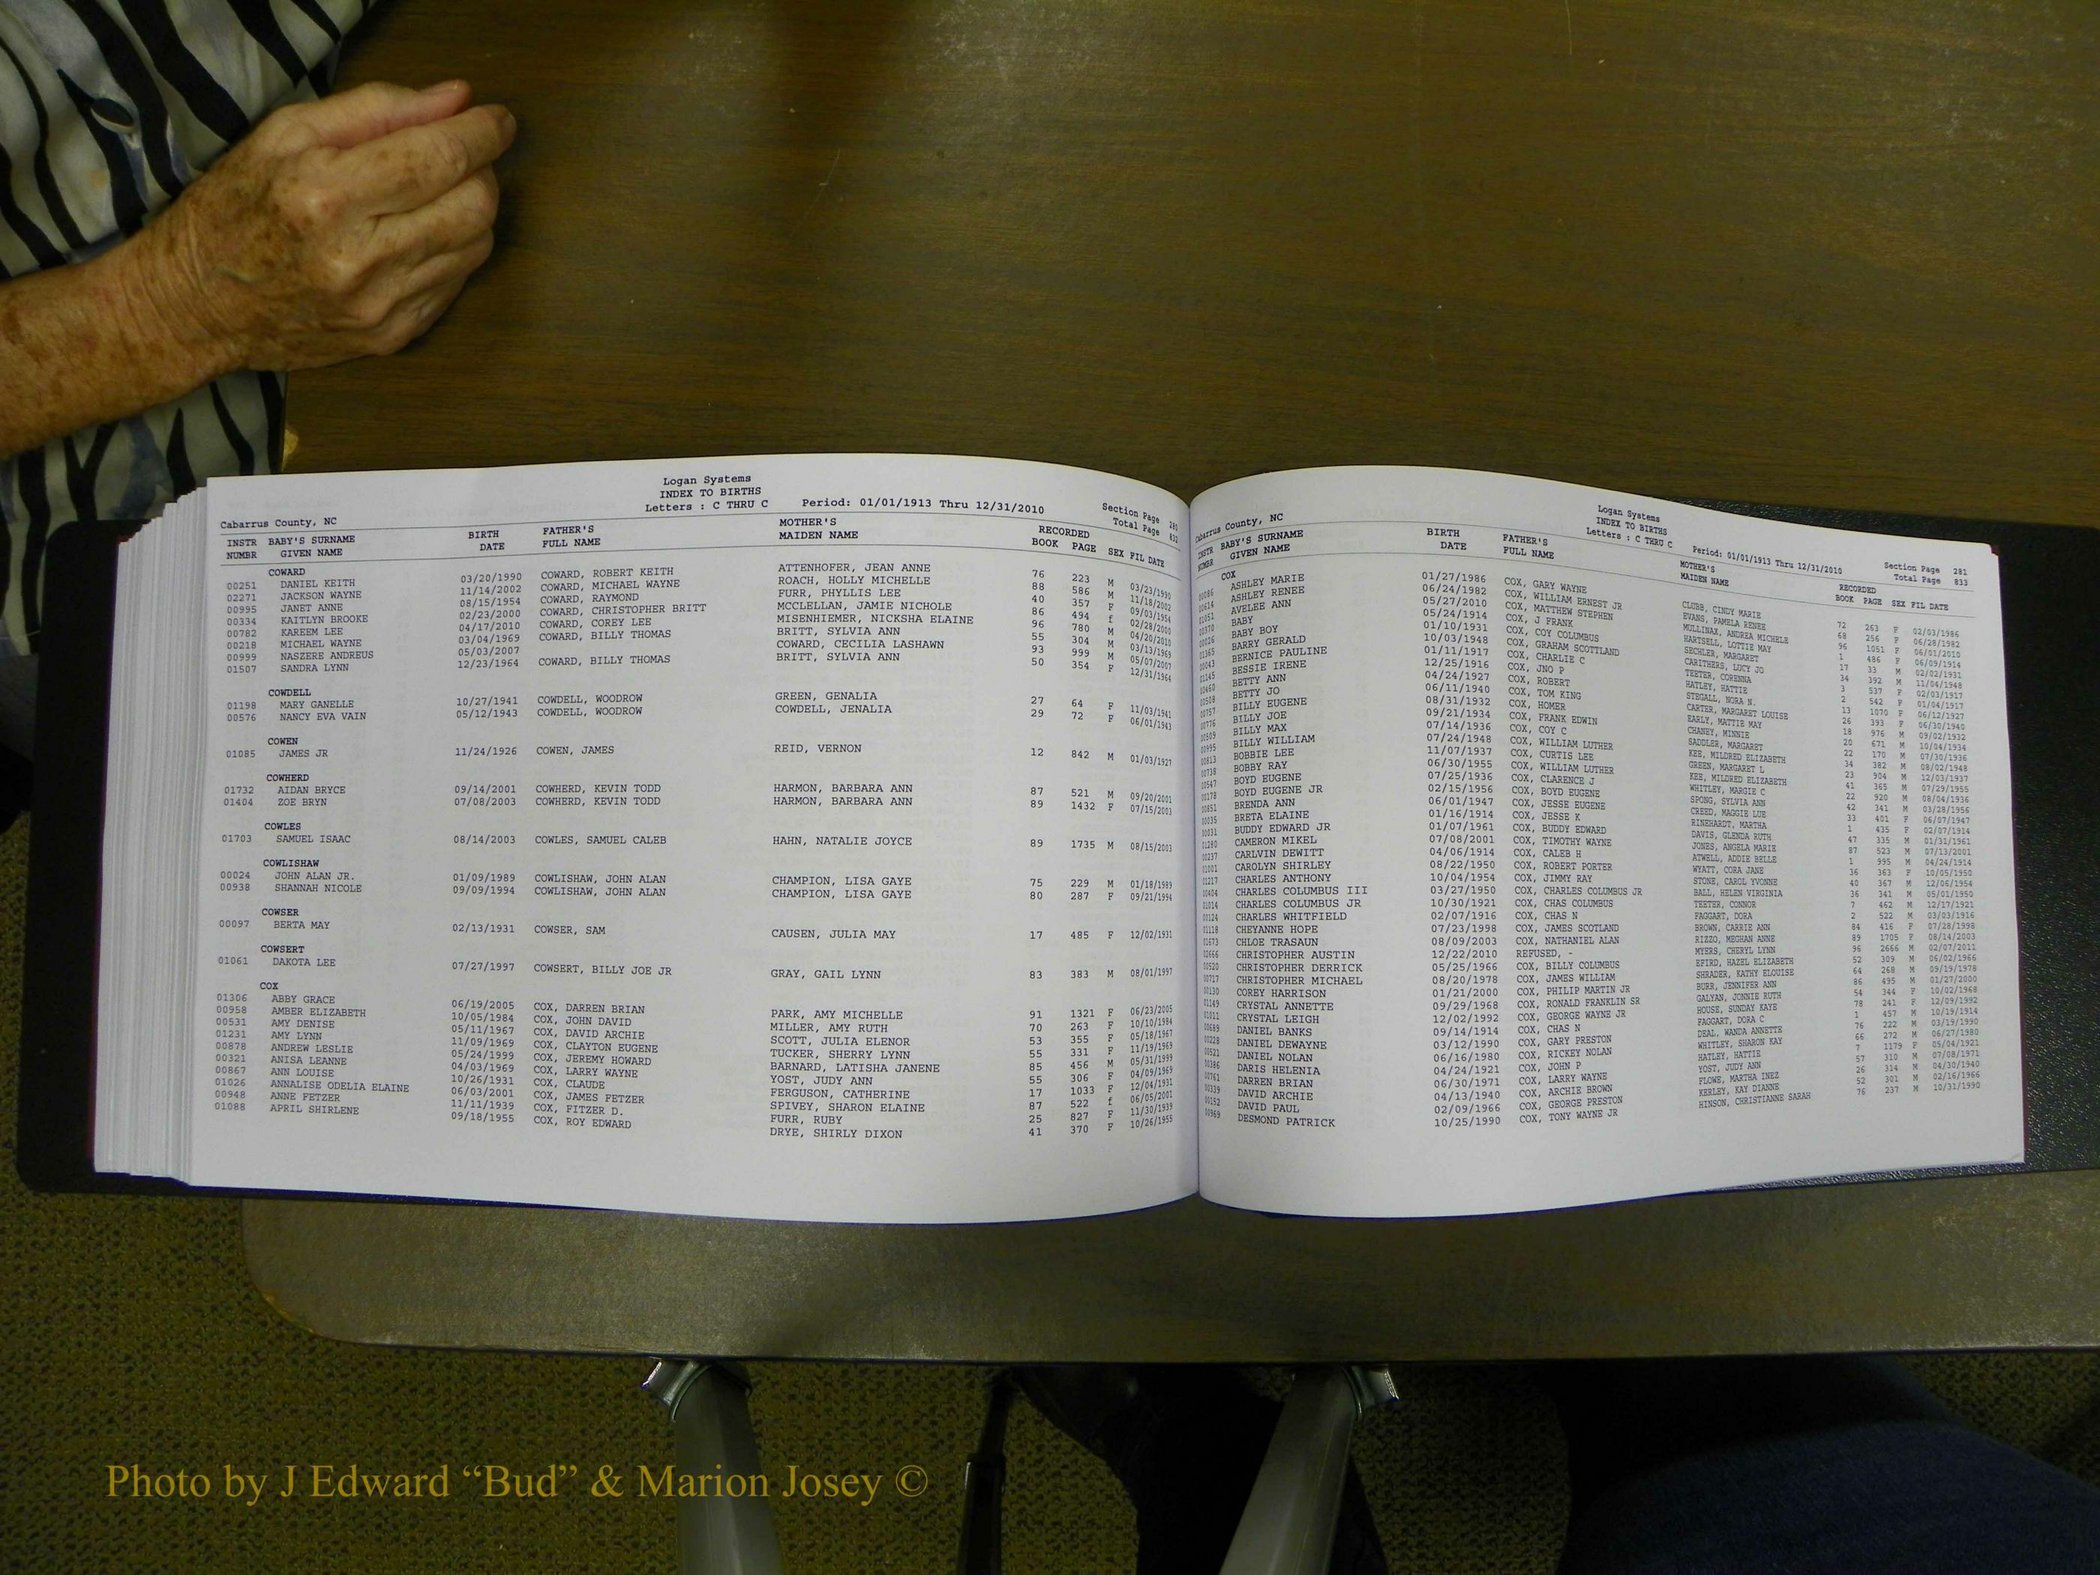 Logan Systems
INDEX TO BIRTHS
Letters : C THRU C Period: 01/01/1913 Thru 12/31/2010
Section Page 280
Total Page 832
Cabarrus County, NC
INSTR BABY'S SURNAME BIRTH FATHER'S MOTHER'S RECORDED
NUMBR GIVEN NAME DATE FULL NAME MAIDEN NAME BOOK PAGE SEX FIL DATE
COWARD
00251 DANIEL KEITH 03/20/1990 COWARD, ROBERT KEITH ATTENHOFER, JEAN ANNE 76 223 M 03/23/1990
02271 JACKSON WAYNE 11/14/2002 COWARD, MICHAEL WAYNE ROACH, HOLLY MICHELLE 88 586 M 11/18/2002
00995 JANET ANNE 08/15/1954 COWARD, RAYMOND FURR, PHYLLIS LEE 40 357 F 09/03/1954
00334 KAITLYN BROOKE 02/23/2000 COWARD, CHRISTOPHER BRITT MCCLELLAN, JAMIE NICHOLE 86 494 f 02/28/2000
00782 KAREEM LEE 04/17/2010 COWARD, COREY LEE MISENHIEMER, NICKSHA ELAINE 96 780 M 04/20/2010
00218 MICHAEL WAYNE 03/04/1969 COWARD, BILLY THOMAS BRITT, SYLVIA ANN 55 304 M 03/13/1969
00999 NASZERE ANDREUS 05/03/2007 COWARD, CECILIA LASHAWN 93 999 M 05/07/2007
01507 SANDRA LYNN 12/23/1964 COWARD, BILLY THOMAS BRITT, SYLVIA ANN 50 354 F 12/31/1964
COWDELL
01198 MARY GANELLE 10/27/1941 COWDELL, WOODROW GREEN, GENALIA 27 64 F 11/03/1941
00576 NANCY EVA VAIN 05/12/1943 COWDELL, WOODROW COWDELL, JENALIA 29 72 F 06/01/1943
COWEN
01085 JAMES JR 11/24/1926 COWEN, JAMES REID, VERNON 12 842 M 01/03/1927
COWHERD
01732 AIDAN BRYCE 09/14/2001 COWHERD, KEVIN TODD HARMON, BARBARA ANN 87 521 M 09/20/2001
01404 ZOE BRYN 07/08/2003 COWHERD, KEVIN TODD HARMON, BARBARA ANN 89 1432 F 07/15/2003
COWLES
01703 SAMUEL ISAAC 08/14/2003 COWLES, SAMUEL CALEB HAHN, NATALIE JOYCE 89 1735 M 08/15/2003
COWLISHAW
00024 JOHN ALAN JR. 01/09/1989 COWLISHAW, JOHN ALAN CHAMPION, LISA GAYE 75 229 M 01/18/1989
00938 SHANNAH NICOLE 09/09/1994 COWLISHAW, JOHN ALAN CHAMPION, LISA GAYE 80 287 F 09/21/1994
COWSER
00097 BERTA MAY 02/13/1931 COWSER, SAM CAUSEN, JULIA MAY 17 485 F 12/02/1931
COWSERT
01061 DAKOTA LEE 07/27/1997 COWSERT, BILLY JOE JR GRAY, GAIL LYNN 83 383 M 08/01/1997
COX
01306 ABBY GRACE 06/19/2005 COX, DARREN BRIAN PARK, AMY MICHELLE 91 1321 F 06/23/2005
00958 AMBER ELIZABETH 10/05/1984 COX, JOHN DAVID MILLER, AMY RUTH 70 263 F 10/10/1984
00531 AMY DENISE 05/11/1967 COX, DAVID ARCHIE SCOTT, JULIA ELENOR 53 355 F 05/18/1967
01231 AMY LYNN 11/09/1969 COX, CLAYTON EUGENE TUCKER, SHERRY LYNN 55 331 F 11/19/1969
00878 ANDREW LESLIE 05/24/1999 COX, JEREMY HOWARD BARNARD, LATISHA JANENE 85 456 M 05/31/1999
00321 ANISA LEANNE 04/03/1969 COX, LARRY WAYNE YOST, JUDY ANN 55 306 F 04/09/1969
00867 ANN LOUISE 10/26/1931 COX, CLAUDE FERGUSON, CATHERINE 17 1033 F 12/04/1931
01026 ANNALISE ODELIA ELAINE 06/03/2001 COX, JAMES FETZER SPIVEY, SHARON ELAINE 87 522 f 06/05/2001
00948 ANNE FETZER 11/11/1939 COX, FITZER D. FURR, RUBY 25 827 F 11/30/1939
01088 APRIL SHIRLENE 09/18/1955 COX, ROY EDWARD DRYE, SHIRLY DIXON 41 370 F 10/26/1955
Logan Systems
INDEX TO BIRTHS
Letters : C THRU C Period: 01/01/1913 Thru 12/31/2010
Section Page 281
Total Page 833
Cabarrus County, NC
INSTR BABY'S SURNAME BIRTH FATHER'S MOTHER'S RECORDED
NUMBR GIVEN NAME DATE FULL NAME MAIDEN NAME BOOK PAGE SEX FIL DATE
COX
00086 ASHLEY MARIE 01/27/1986 COX, GARY WAYNE CLUBB, CINDY MARIE 72 263 F 02/03/1986
00614 ASHLEY RENEE 06/24/1982 COX, WILLIAM ERNEST JR EVANS, PAMELA RENEE 68 256 F 06/28/1982
01051 AVELEE ANN 05/27/2010 COX, MATTHEW STEPHEN MULLINAX, ANDREA MICHELE 96 1051 F 06/01/2010
00370 BABY 05/24/1914 COX, J FRANK HARTSELL, LOTTIE MAY 1 486 F 06/09/1914
00026 BABY BOY 01/10/1931 COX, COY COLUMBUS SECHLER, MARGARET 17 33 M 02/02/1931
01365 BARRY GERALD 10/03/1948 COX, GRAHAM SCOTTLAND CARITHERS, LUCY JO 34 392 M 11/04/1948
00043 BERNICE PAULINE 01/11/1917 COX, CHARLIE C TEETER, CORENNA 3 537 F 02/03/1917
01145 BESSIE IRENE 12/25/1916 COX, JNO P HATLEY, HATTIE 2 542 F 01/04/1917
00460 BETTY ANN 04/24/1927 COX, ROBERT STEGALL, NORA N. 13 1070 F 06/12/1927
00508 BETTY JO 06/11/1940 COX, TOM KING CARTER, MARGARET LOUISE 26 393 F 06/30/1940
00757 BILLY EUGENE 08/31/1932 COX, HOMER EARLY, MATTIE MAY 18 976 M 09/02/1932
00776 BILLY JOE 09/21/1934 COX, FRANK EDWIN CHANEY, MINNIE 20 671 M 10/04/1934
00509 BILLY MAX 07/14/1936 COX, COY C SADDLER, MARGARET 22 170 M 07/30/1936
00995 BILLY WILLIAM 07/24/1948 COX, WILLIAM LUTHER KEE, MILDRED ELIZABETH 34 382 M 08/02/1948
00813 BOBBIE LEE 11/07/1937 COX, CURTIS LEE GREEN, MARGARET L 23 904 M 12/03/1937
00738 BOBBY RAY 06/30/1955 COX, WILLIAM LUTHER KEE, MILDRED ELIZABETH 41 365 M 07/29/1955
00547 BOYD EUGENE 07/25/1936 COX, CLARENCE J WHITLEY, MARGIE C 22 920 M 08/04/1936
00178 BOYD EUGENE JR 02/15/1956 COX, BOYD EUGENE SPONG, SYLVIA ANN 42 341 M 03/28/1956
00851 BRENDA ANN 06/01/1947 COX, JESSE EUGENE CREED, MAGGIE LUE 33 401 F 06/07/1947
00035 BRETA ELAINE 01/16/1914 COX, JESSE K RINEHARDT, MARTHA 1 435 F 02/07/1914
00031 BUDDY EDWARD JR 01/07/1961 COX, BUDDY EDWARD DAVIS, GLENDA RUTH 47 335 M 01/31/1961
01280 CAMERON MIKEL 07/08/2001 COX, TIMOTHY WAYNE JONES, ANGELA MARIE 87 523 M 07/13/2001
00237 CARLVIN DEWITT 04/06/1914 COX, CALEB H ATWELL, ADDIE BELLE 1 995 M 04/24/1914
01001 CAROLYN SHIRLEY 08/22/1950 COX, ROBERT PORTER WYATT, CORA JANE 36 363 F 10/05/1950
01217 CHARLES ANTHONY 10/04/1954 COX, JIMMY RAY STONE, CAROL YVONNE 40 367 M 12/06/1954
00404 CHARLES COLUMBUS III 03/27/1950 COX, CHARLES COLUMBUS JR BALL, HELEN VIRGINIA 36 341 M 05/01/1950
01014 CHARLES COLUMBUS JR 10/30/1921 COX, CHAS COLUMBUS TEETER, CONNOR 7 462 M 12/17/1921
00124 CHARLES WHITFIELD 02/07/1916 COX, CHAS N FAGGART, DORA 2 522 M 03/03/1916
01118 CHEYANNE HOPE 07/23/1998 COX, JAMES SCOTLAND BROWN, CARRIE ANN 84 416 F 07/28/1998
01673 CHLOE TRASAUN 08/09/2003 COX, NATHANIEL ALAN RIZZO, MEGHAN ANNE 89 1705 F 08/14/2003
02666 CHRISTOPHER AUSTIN 12/22/2010 REFUSED, - MYERS, CHERYL LYNN 96 2666 M 02/07/2011
00520 CHRISTOPHER DERRICK 05/25/1966 COX, BILLY COLUMBUS EFIRD, HAZEL ELIZABETH 52 309 M 06/02/1966
00717 CHRISTOPHER MICHAEL 08/20/1978 COX, JAMES WILLIAM SHRADER, KATHY ELOUISE 64 268 M 09/19/1978
00130 COREY HARRISON 01/21/2000 COX, PHILIP MARTIN JR BURR, JENNIFER ANN 86 495 M 01/27/2000
01149 CRYSTAL ANNETTE 09/29/1968 COX, RONALD FRANKLIN SR GALYAN, JONNIE RUTH 54 344 F 10/02/1968
01011 CRYSTAL LEIGH 12/02/1992 COX, GEORGE WAYNE JR HOUSE, SUNDAY KAYE 78 241 F 12/09/1992
00689 DANIEL BANKS 09/14/1914 COX, CHAS N FAGGART, DORA C 1 457 M 10/19/1914
00228 DANIEL DEWAYNE 03/12/1990 COX, GARY PRESTON DEAL, WANDA ANNETTE 76 222 M 03/19/1990
00521 DANIEL NOLAN 06/16/1980 COX, RICKEY NOLAN WHITLEY, SHARON KAY 66 272 M 06/27/1980
00386 DARIS HELENIA 04/24/1921 COX, JOHN P HATLEY, HATTIE 7 1179 F 05/04/1921
00761 DARREN BRIAN 06/30/1971 COX, LARRY WAYNE YOST, JUDY ANN 57 310 M 07/08/1971
00339 DAVID ARCHIE 04/13/1940 COX, ARCHIE BROWN FLOWE, MARTHA INEZ 26 314 M 04/30/1940
00152 DAVID PAUL 02/09/1966 COX, GEORGE PRESTON KERLEY, KAY DIANNE 52 301 M 02/16/1966
00969 DESMOND PATRICK 10/25/1990 COX, TONY WAYNE JR HINSON, CHRISTIANNE SARAH 76 237 M 10/31/1990
Photo by J Edward “Bud” & Marion Josey ©